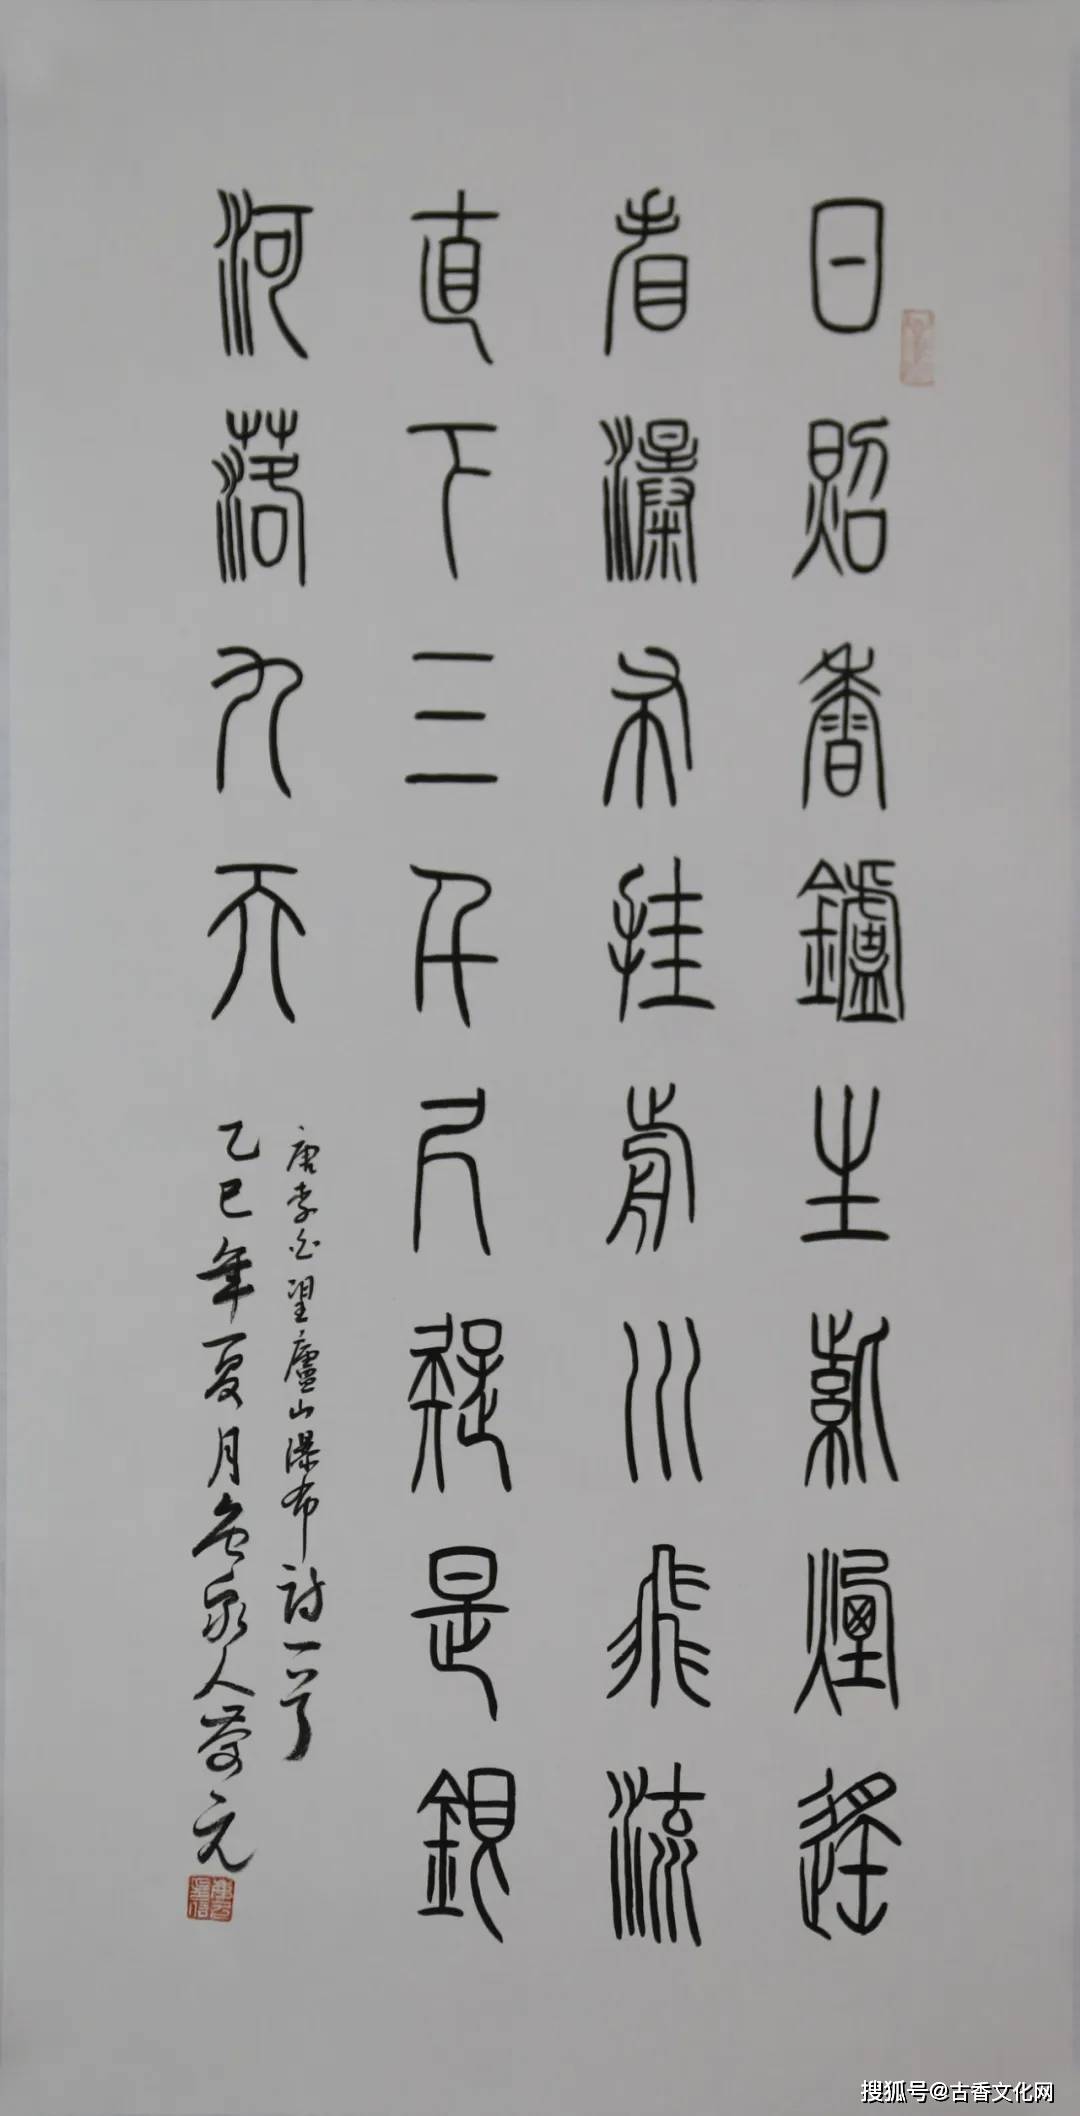 日照香鑪生紫煙遥
看瀑布挂前川飛流
直下三千尺疑是銀
河落九天
唐李白望廬山瀑布詩一首
乙巳年夏月
人
元
搜狐号@古香文化网